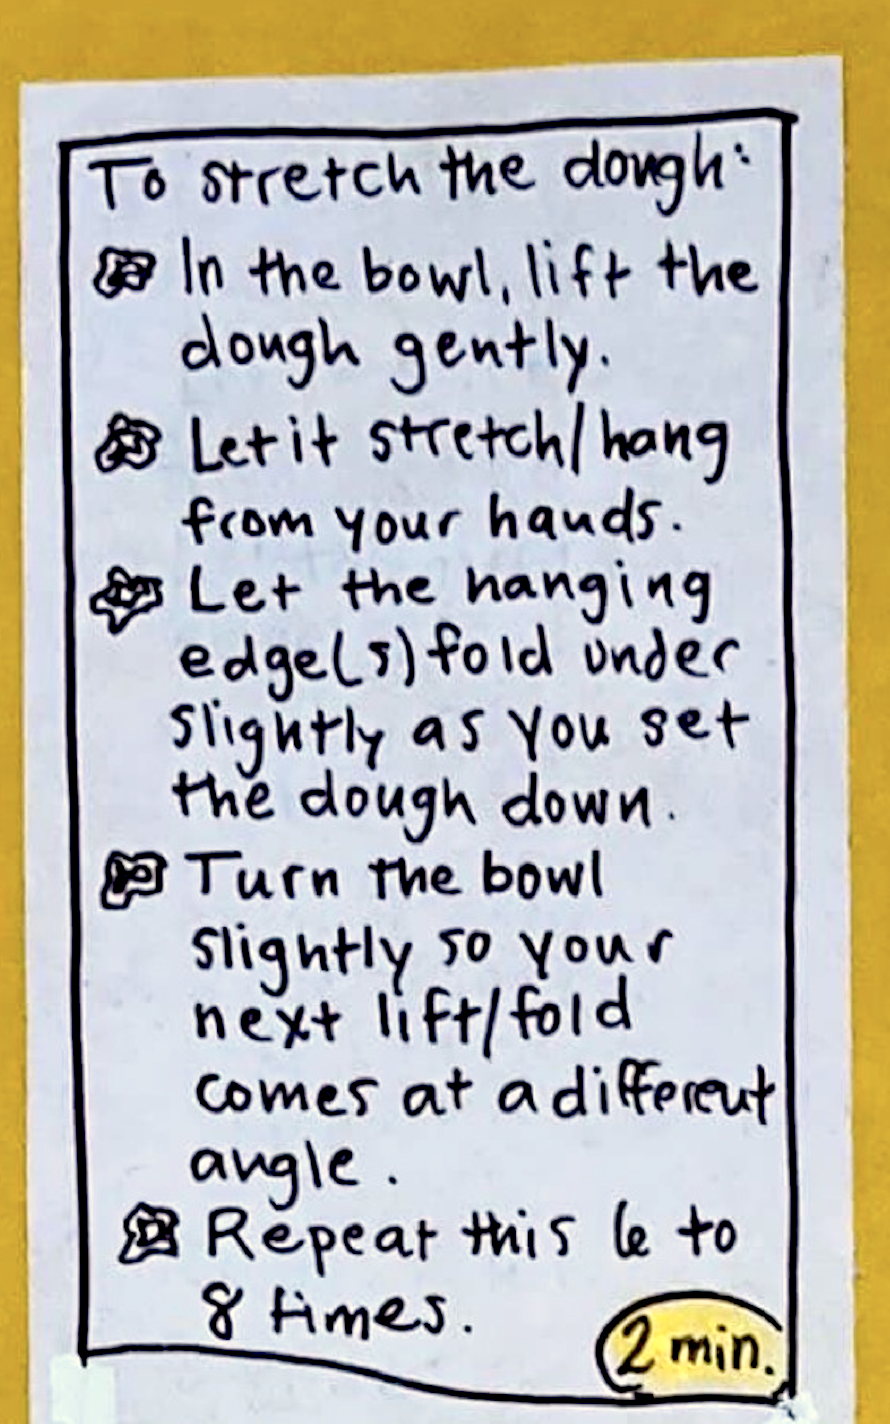 To stretch the dough:
In the bowl, lift the
dough gently.
Let it stretch/hang
from your hands.
Let the hanging
edge(s) fold under
slightly as you set
the dough down.
Turn the bowl
slightly so your
next lift/fold
comes at a different
angle.
Repeat this 6 to
8 times.
2 min.